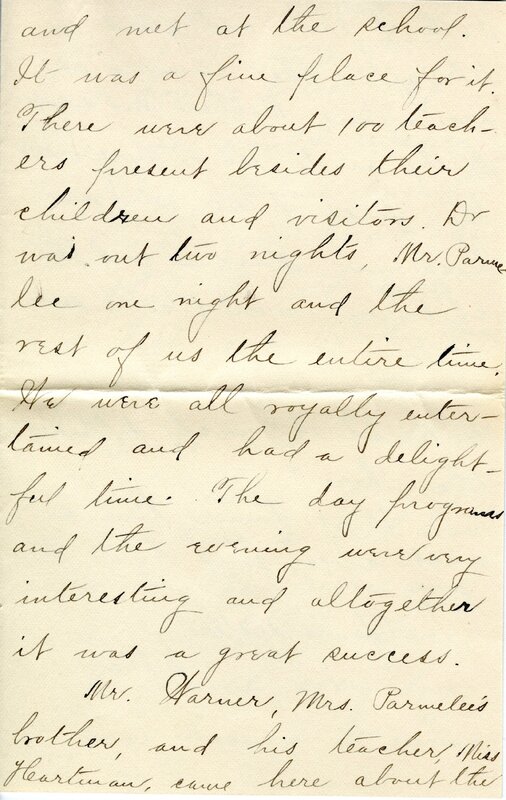 and met at the school.
It was a fine place for it.
There were about 100 teach-
ers present besides their
children and visitors. Dr
was out two nights, Mr. Parme
lee one night and the
rest of us the entire time.
We were all royally enter-
tained and had a delight-
ful time. The day programs
and the evening were very
interesting and altogether
it was a great success.
Mr. Warner, Mrs. Parmelee's
brother, and his teacher, Miss
Hartman, came here about the